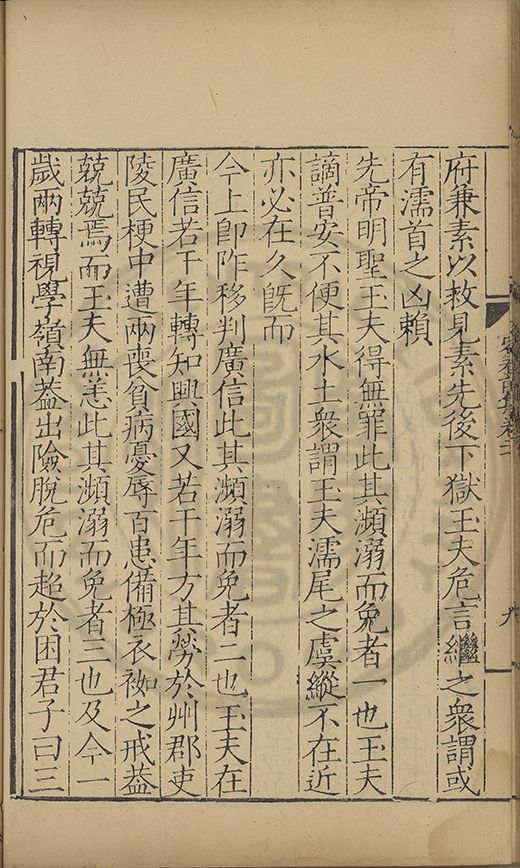 府兼素以救見素先後下獄玉夫危言繼之衆謂或
有濡首之凶賴
先帝明聖玉夫得無罪此其瀕溺而免者一也玉夫
謫普安不便其水土衆謂玉夫濡尾之虞縱不在近
亦必在久旣而
今上卽阼移判廣信此其瀕溺而免者二也玉夫在
廣信若干年轉知興國又若干年方其勞於州郡吏
陵民梗中遭兩喪貧病憂辱百患備極衣袽之戒葢
兢兢焉而玉夫無恙此其瀕溺而免者三也及今一
歲兩轉視學嶺南葢出險脫危而超於困君子曰三
九